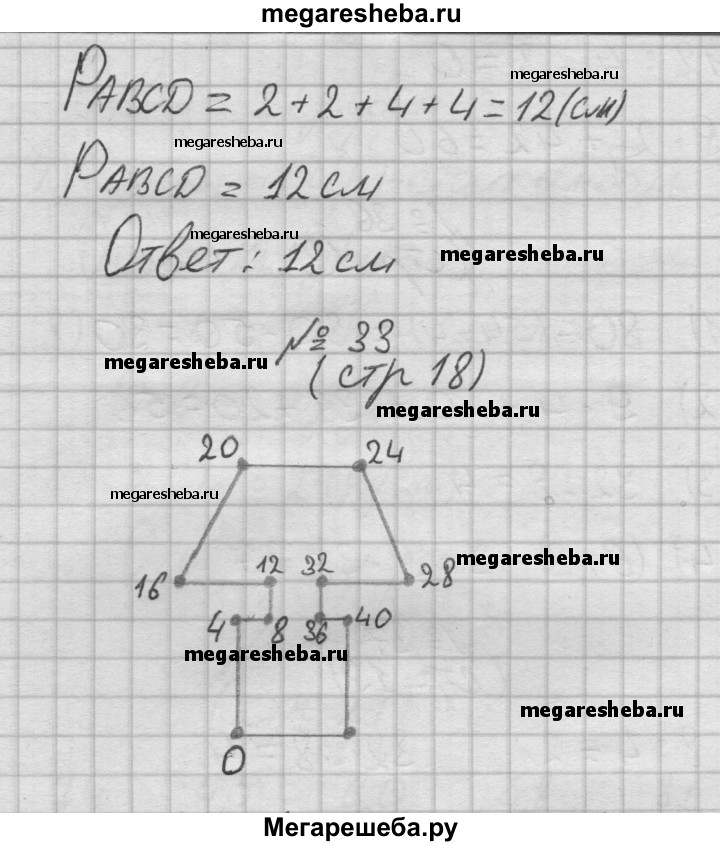 megaresheba.ru
megaresheba.ru
PABCD = 2 + 2 + 4 + 4 = 12 (см)
megaresheba.ru
PABCD = 12 см
megaresheba.ru
Ответ: 12 см
megaresheba.ru
№ 33
megaresheba.ru
(стр 18)
megaresheba.ru
20 24
megaresheba.ru
megaresheba.ru
16 12 32 28
4 8 36 40
megaresheba.ru
megaresheba.ru
0
Мегарешеба.ру